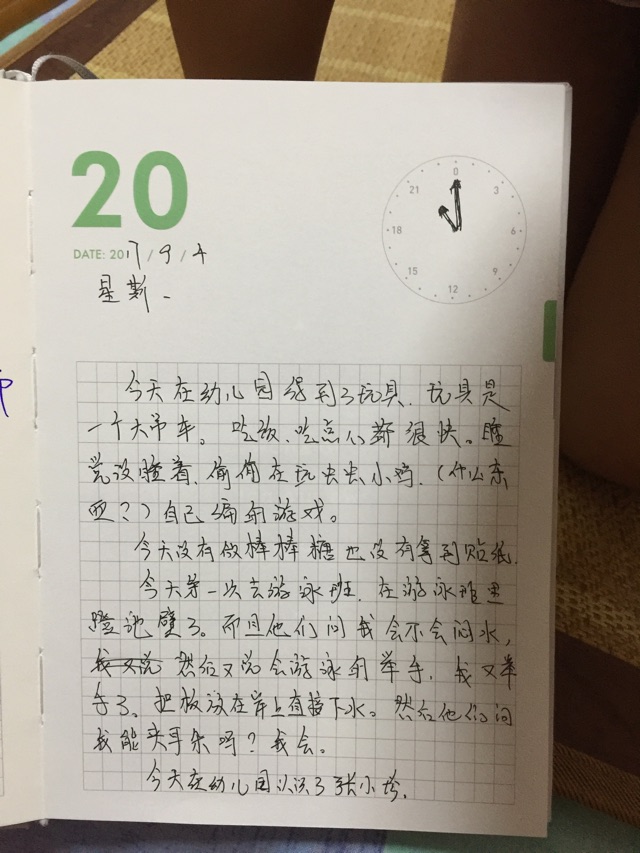 20
0
21
3
18
6
15
9
12
DATE: 2017/9/4
星期一
今天在幼儿园得到了玩具,玩具是
一个大吊车。吃饭、吃点心都很快。睡
觉没睡着,偷偷在玩虫虫小鸡,(什么东
西?)自己编的游戏。
今天没有做棒棒糖也没有拿到贴纸.
今天第一次去游泳班,在游泳班里
蹬池壁了。而且他们问我会不会闷水,
我又说 然后又说会游泳的举手,我又举
手了。把板放在岸上直接下水。然后他们问
我能来乎乐吗?我会。
今天在幼儿园认识了张小